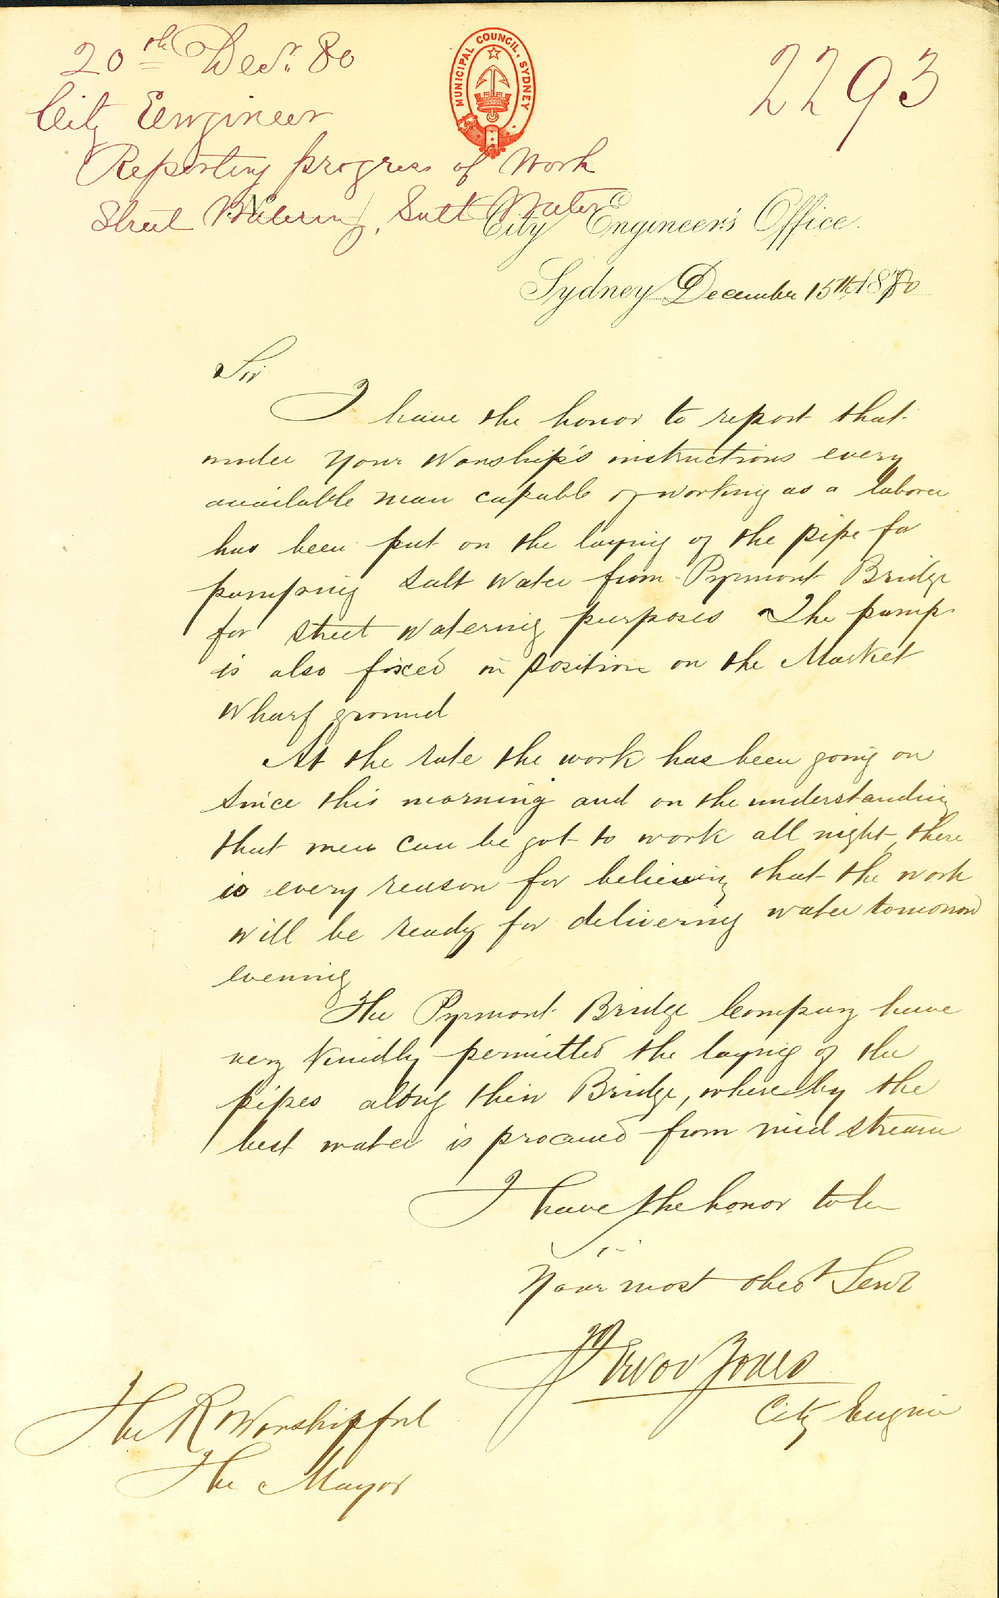 20th Decr. 80
2293
City Engineer
Reporting progress of Work
Street Watering, Salt Water
MUNICIPAL COUNCIL, SYDNEY
No
City Engineer's Office.
Sydney December 15th 1880
Sir
I have the honor to report that
under Your Worship's instructions every
available man capable of working as a laborer
has been put on the laying of the pipe for
pumping Salt Water from Pyrmont Bridge
for street watering purposes The pump
is also fixed in position on the Market
Wharf ground
At the rate the work has been going on
since this morning and on the understanding
that men can be got to work all night, there
is every reason for believing that the work
will be ready for delivering water tomorrow
evening
The Pyrmont Bridge Company have
very kindly permitted the laying of the
pipes along their Bridge, whereby the
best water is procured from mid stream
I have the honor to be
Sir
Your most obedt Servt
Trevor Jones
City Engineer
The Rt Worshipful
The Mayor